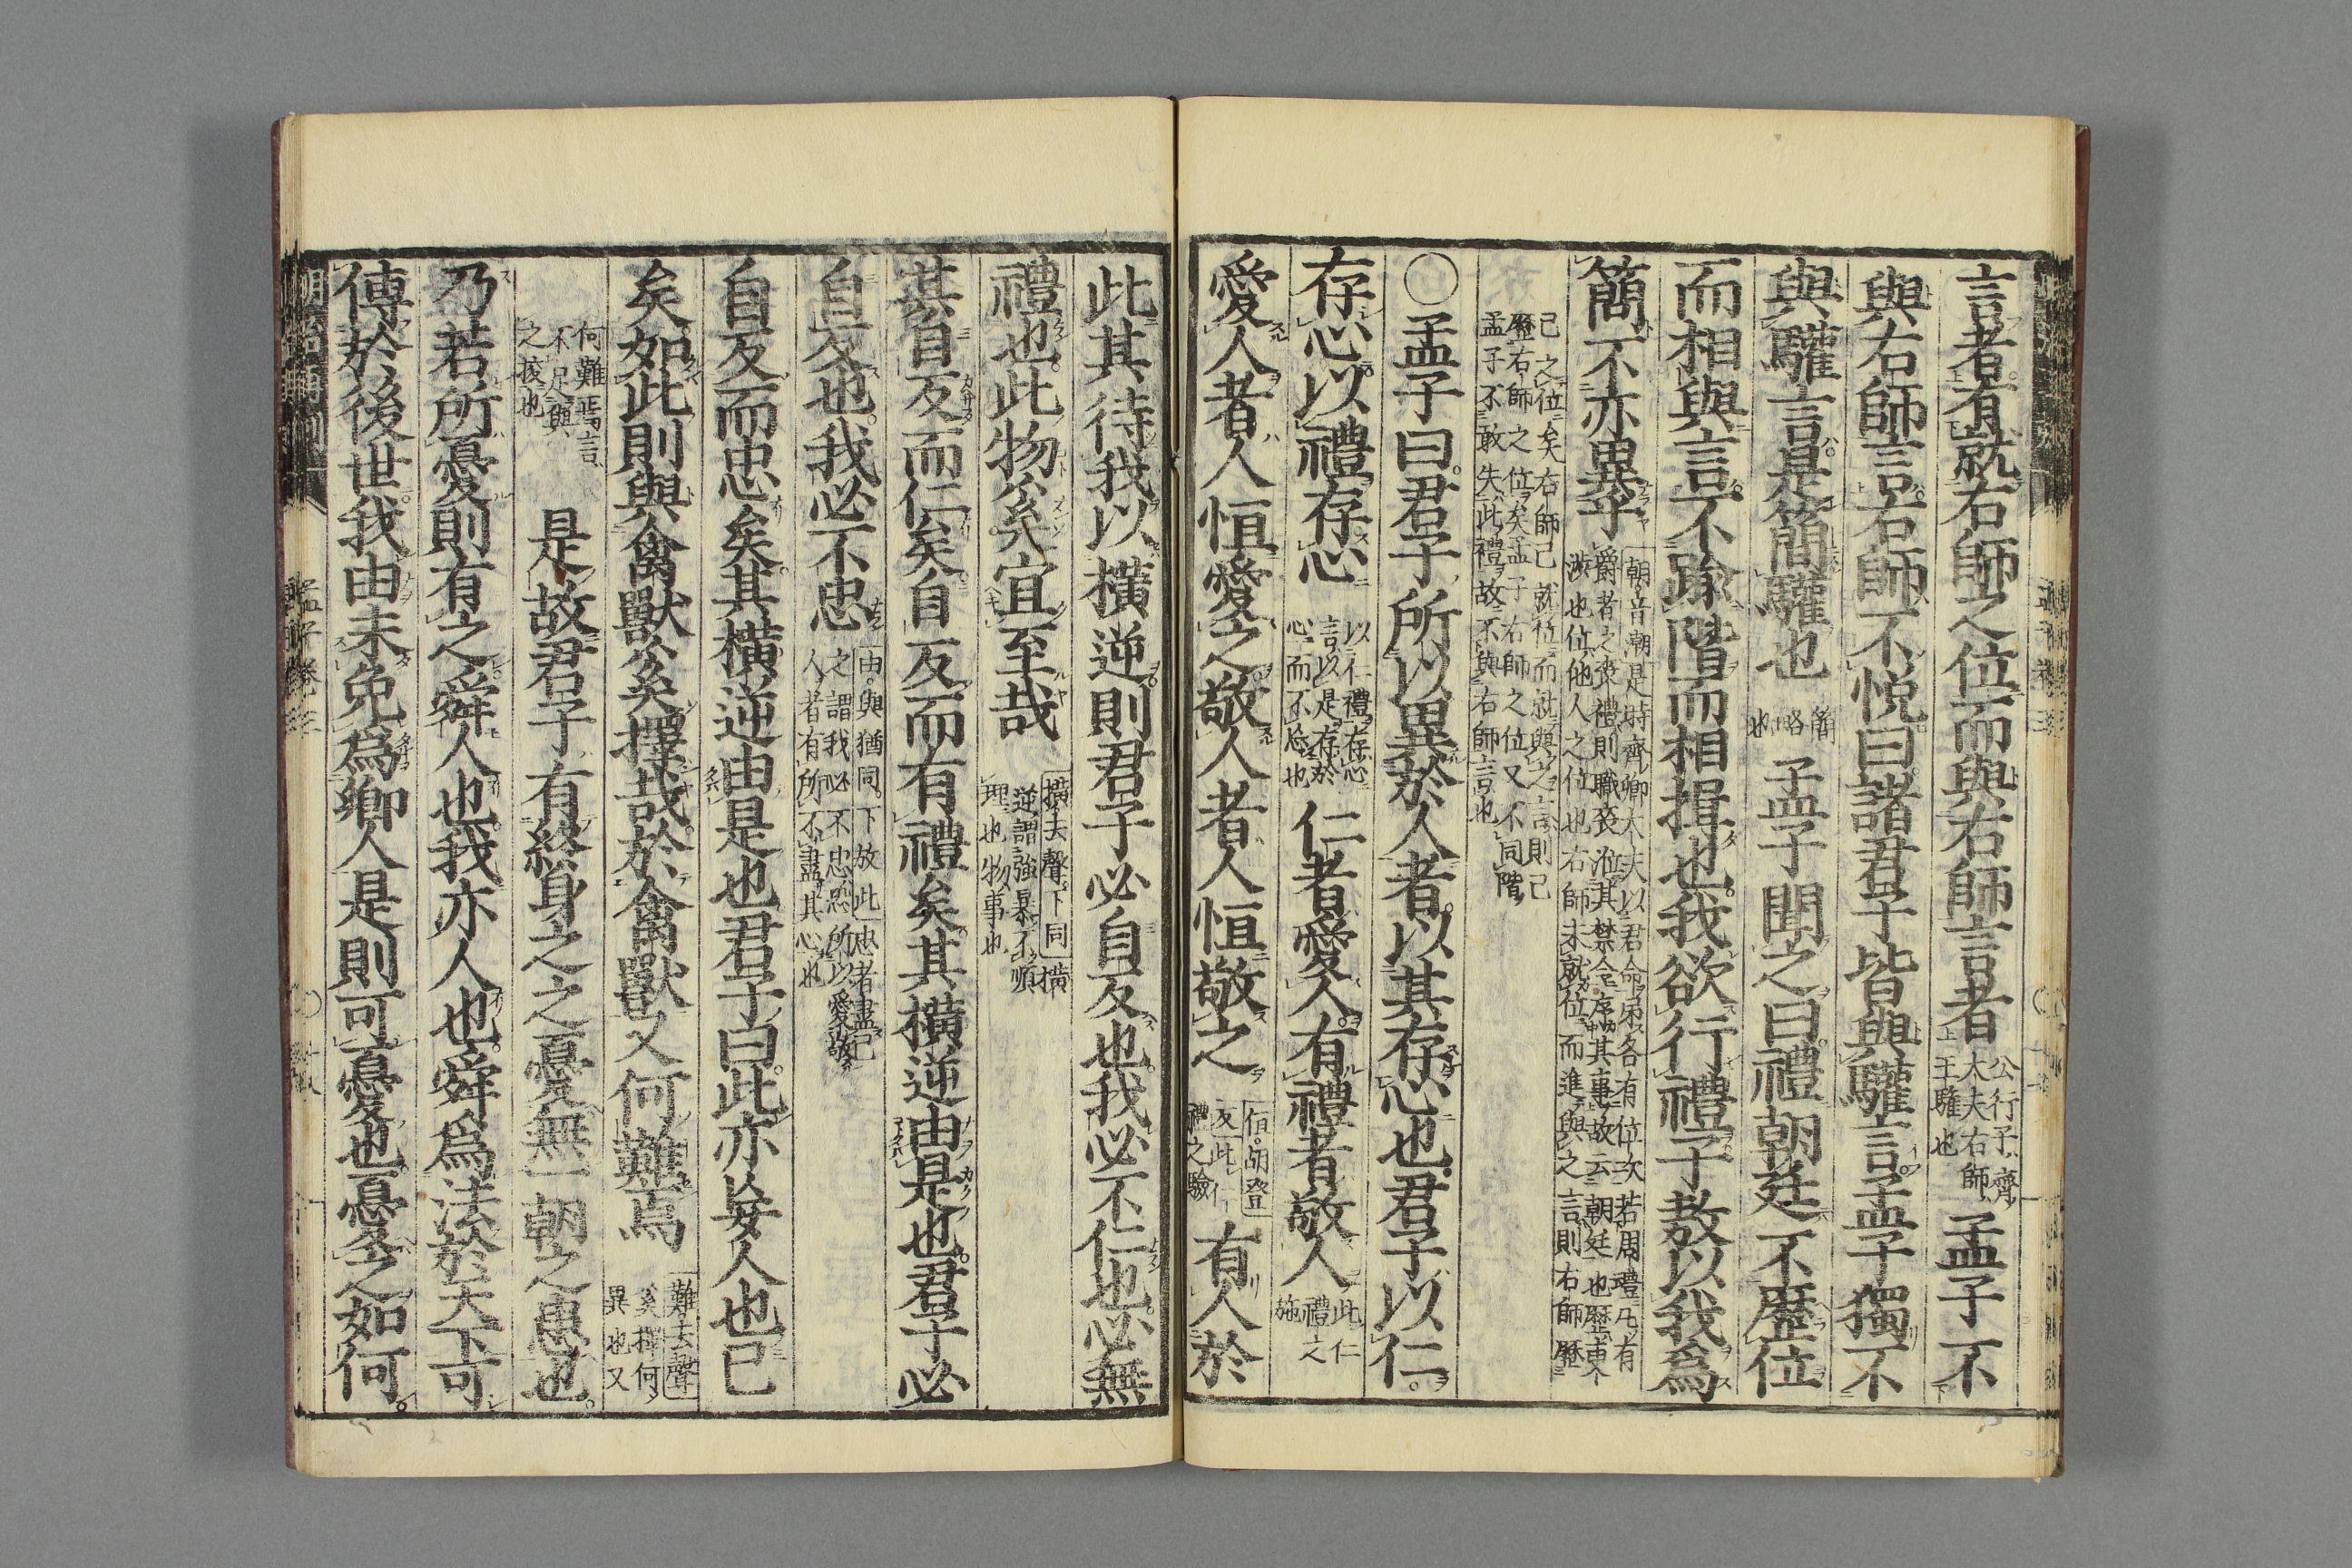 言者有就右師之位而與右師言者
公行子齊
大夫右師
王驩也
孟子不
與右師言右師不悅曰諸君子皆與驩言孟子獨不
與驩言是簡驩也
簡
略
也
孟子聞之曰禮朝廷不歷位
而相與言不踰階而相揖也我欲行禮子敖以我爲
簡不亦異乎
朝音潮是時齊卿大夫以君命弔各有位次若周禮凡有
爵者之喪禮則職喪涖其禁令序其事故云朝廷也歷更
涉也位他人之位也右師未就位而進與之言則右師歷
己之位矣右師已就位而就與之言則己
歷右師之位矣孟子右師之位又不同階
孟子不敢失此禮故不與右師言也
○孟子曰君子所以異於人者以其存心也君子以仁
存心以禮存心
以仁禮存心
言以是存於
心而不忘也
仁者愛人有禮者敬人
此仁
禮之
施
愛人者人恒愛之敬人者人恒敬之
恒胡登
反此仁
禮之驗
有人於
此其待我以橫逆則君子必自反也我必不仁也必無
禮也此物奚宜至哉
橫去聲下同橫
逆謂強暴不順
理也物事也
其自反而仁矣自反而有禮矣其橫逆由是也君子必
自反也我必不忠
由與猶同下放此忠者盡己
之謂我必不忠恐所以愛敬
人者有所不盡其心也
自反而忠矣其橫逆由是也君子曰此亦妄人也已
矣如此則與禽獸奚擇哉於禽獸又何難焉
難去聲
奚擇何
異也又
何難焉言
不足與
之挍也
是故君子有終身之之憂無一朝之患也
乃若所憂則有之舜人也我亦人也舜爲法於天下可
傳於後世我由未免爲鄉人也是則可憂也憂之如何